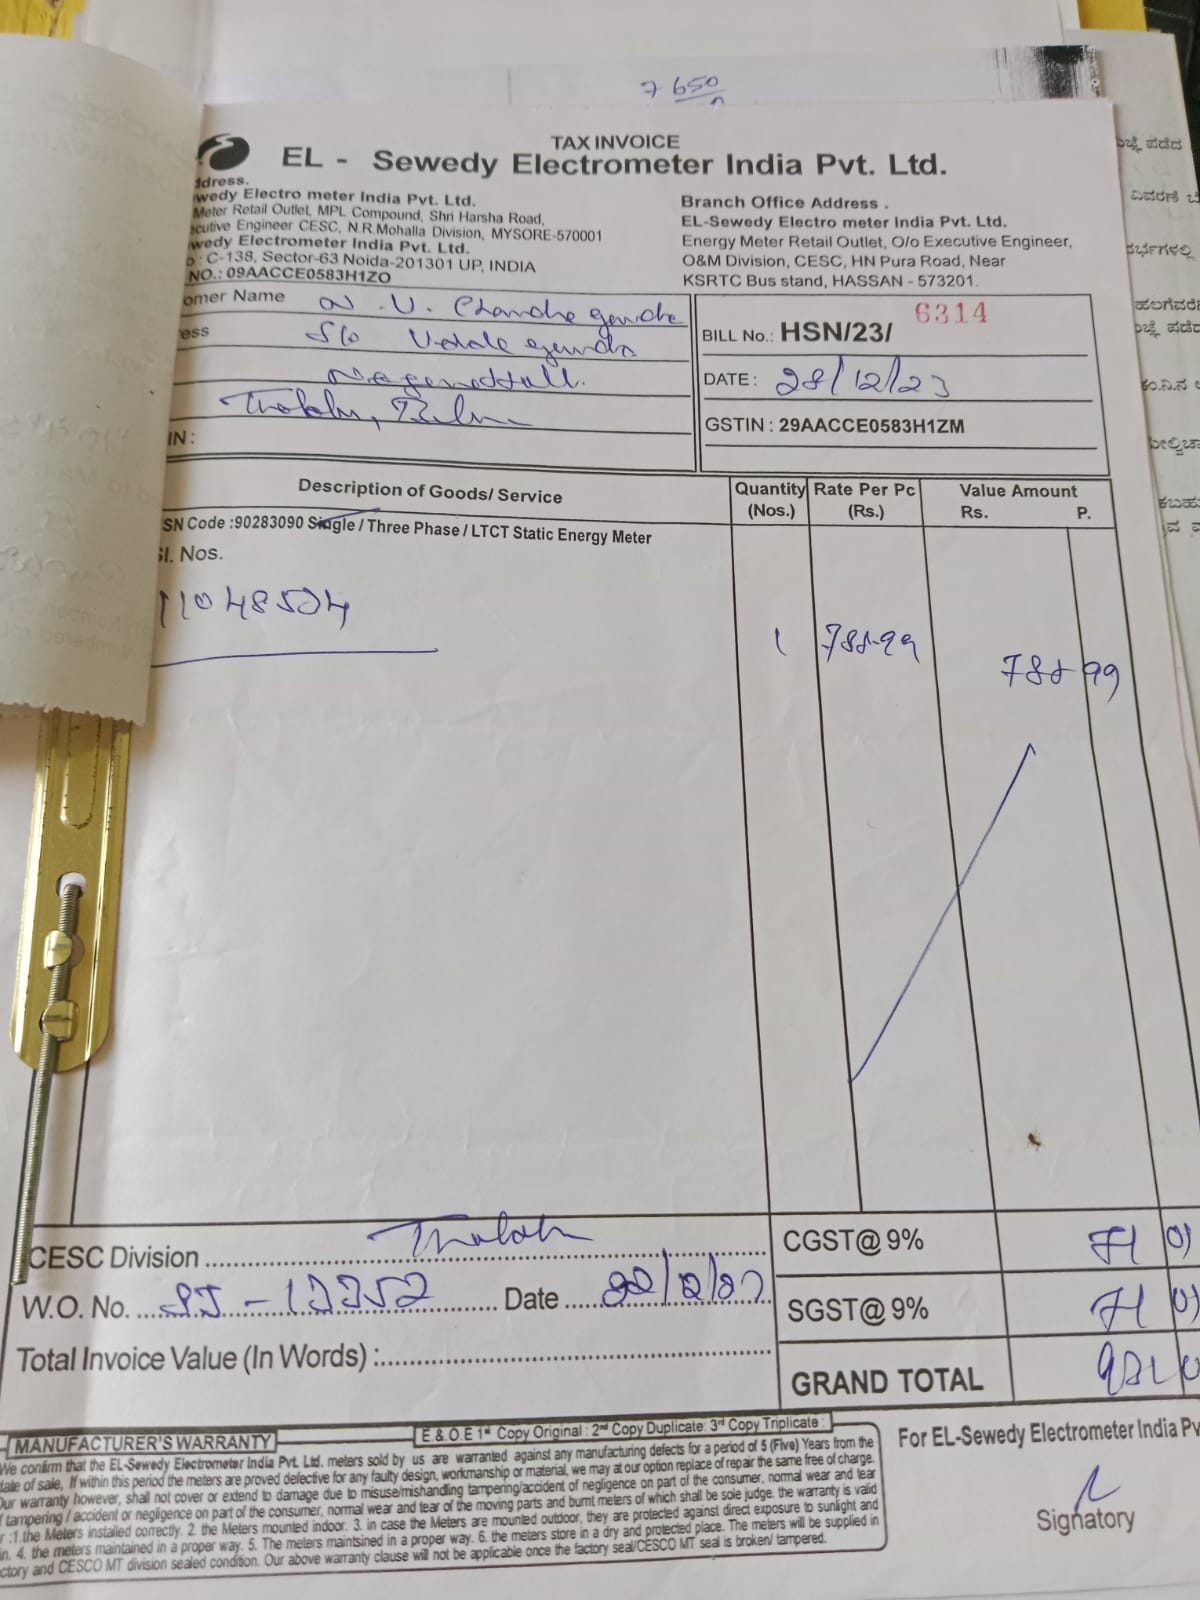 7650
TAX INVOICE
EL - Sewedy Electrometer India Pvt. Ltd.
ddress.
wedy Electro meter India Pvt. Ltd.
Meter Retail Outlet, MPL Compound, Shri Harsha Road,
cutive Engineer CESC, N.R.Mohalla Division, MYSORE-570001
wedy Electrometer India Pvt. Ltd.
: C-138, Sector-63 Noida-201301 UP, INDIA
NO.: 09AACCE0583H1ZO
Branch Office Address .
EL-Sewedy Electro meter India Pvt. Ltd.
Energy Meter Retail Outlet, O/o Executive Engineer,
O&M Division, CESC, HN Pura Road, Near
KSRTC Bus stand, HASSAN - 573201.
omer Name N.U. Chandregowda
ess S/o
IN :
6314
BILL No.: HSN/23/
DATE : 28/12/23
GSTIN : 29AACCE0583H1ZM
Description of Goods/ Service
Quantity (Nos.)
Rate Per Pc (Rs.)
Value Amount
Rs. P.
SN Code :90283090 Single / Three Phase / LTCT Static Energy Meter
Sl. Nos.
11048504
1 788-99 788 99
CESC Division
W.O. No. Date
Total Invoice Value (In Words) :
CGST@ 9% 71 01
SGST@ 9% 71 01
GRAND TOTAL
E & O.E 1st Copy Original : 2nd Copy Duplicate: 3rd Copy Triplicate :
MANUFACTURER'S WARRANTY
We confirm that the EL-Sewedy Electrometer India Pvt. Ltd. meters sold by us are warranted against any manufacturing defects for a period of 5 (Five) Years from the
date of sale, If within this period the meters are proved defective for any faulty design, workmanship or material, we may at our option replace of repair the same free of charge.
Our warranty however, shall not cover or extend to damage due to misuse/mishandling tampering/accident of negligence on part of the consumer, normal wear and tear
tampering / accident or negligence on part of the consumer, normal wear and tear of the moving parts and burnt meters of which shall be sole judge. the warranty is valid
r :1.the Meters installed correctly. 2. the Meters mounted indoor. 3. in case the Meters are mounted outdoor, they are protected against direct exposure to sunlight and
in. 4. the meters maintained in a proper way. 5. The meters maintsined in a proper way. 6. the meters store in a dry and protected place. The meters will be supplied in
ctory and CESCO MT division sealed condition. Our above warranty clause will not be applicable once the factory seal/CESCO MT seal is broken/ tampered.
For EL-Sewedy Electrometer India Pv
Signatory